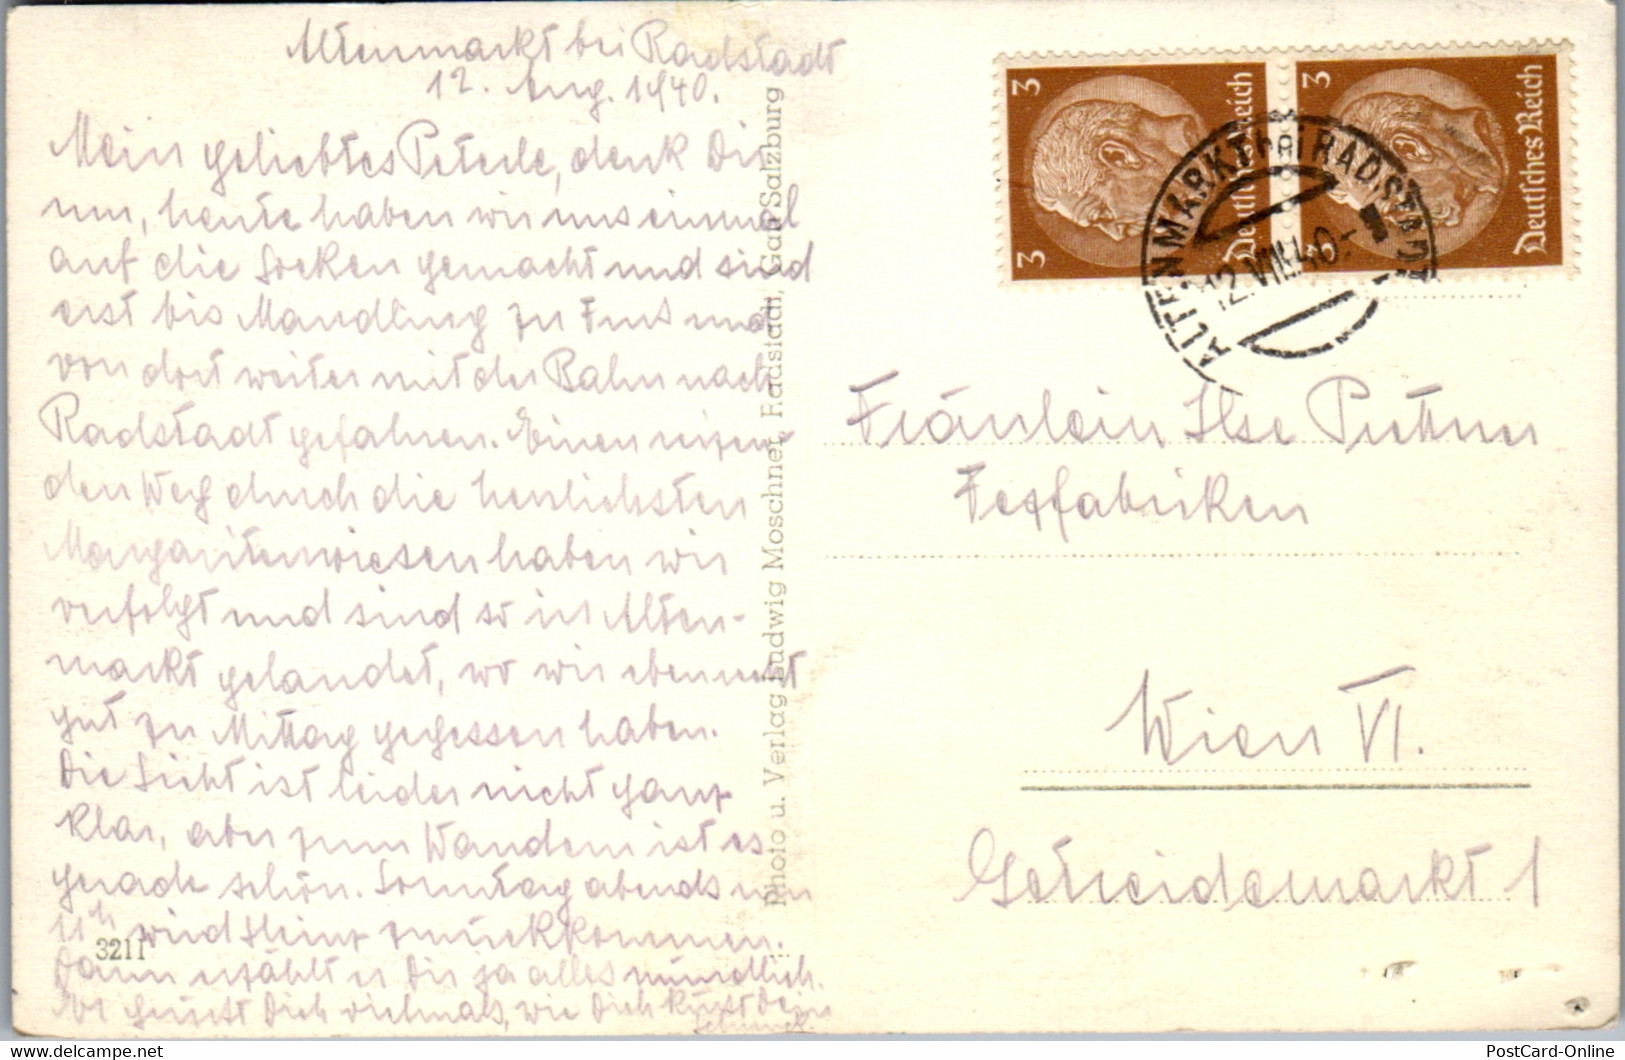 Altenmarkt bei Radstadt
12. Aug. 1940.
Mein geliebtes Peterle, denk Dir
nur, heute haben wir uns einmal
auf die Socken gemacht und sind
erst bis Mandling zu Fuss und
von dort weiter mit der Bahn nach
Radstadt gefahren. Einen reizen-
den Weg durch die herrlichsten
Margaritenwiesen haben wir
verfolgt und sind so in Alten-
markt gelandet, wo wir eben
gut zu Mittag gegessen haben.
Die Sicht ist leider nicht ganz
klar, aber zum Wandern ist es
gerade schön. Sonntag abends um
11h wird Heinz zurückkommen.
Dann erzählt er Dir ja alles mündlich.
Es grüsst Dich vielmals, wie Dich küsst Dein
3211
Photo u. Verlag Ludwig Moschner, Radstadt, Gau Salzburg
3 Deutsches Reich 3
3 Deutsches Reich 3
ALTENMARKT bei RADSTADT
12.VIII.40
Fräulein Ilse Püttner
Fezfabriken
Wien VI.
Getreidemarkt 1
PostCard-Online
delcampe.net
PostCard-Online